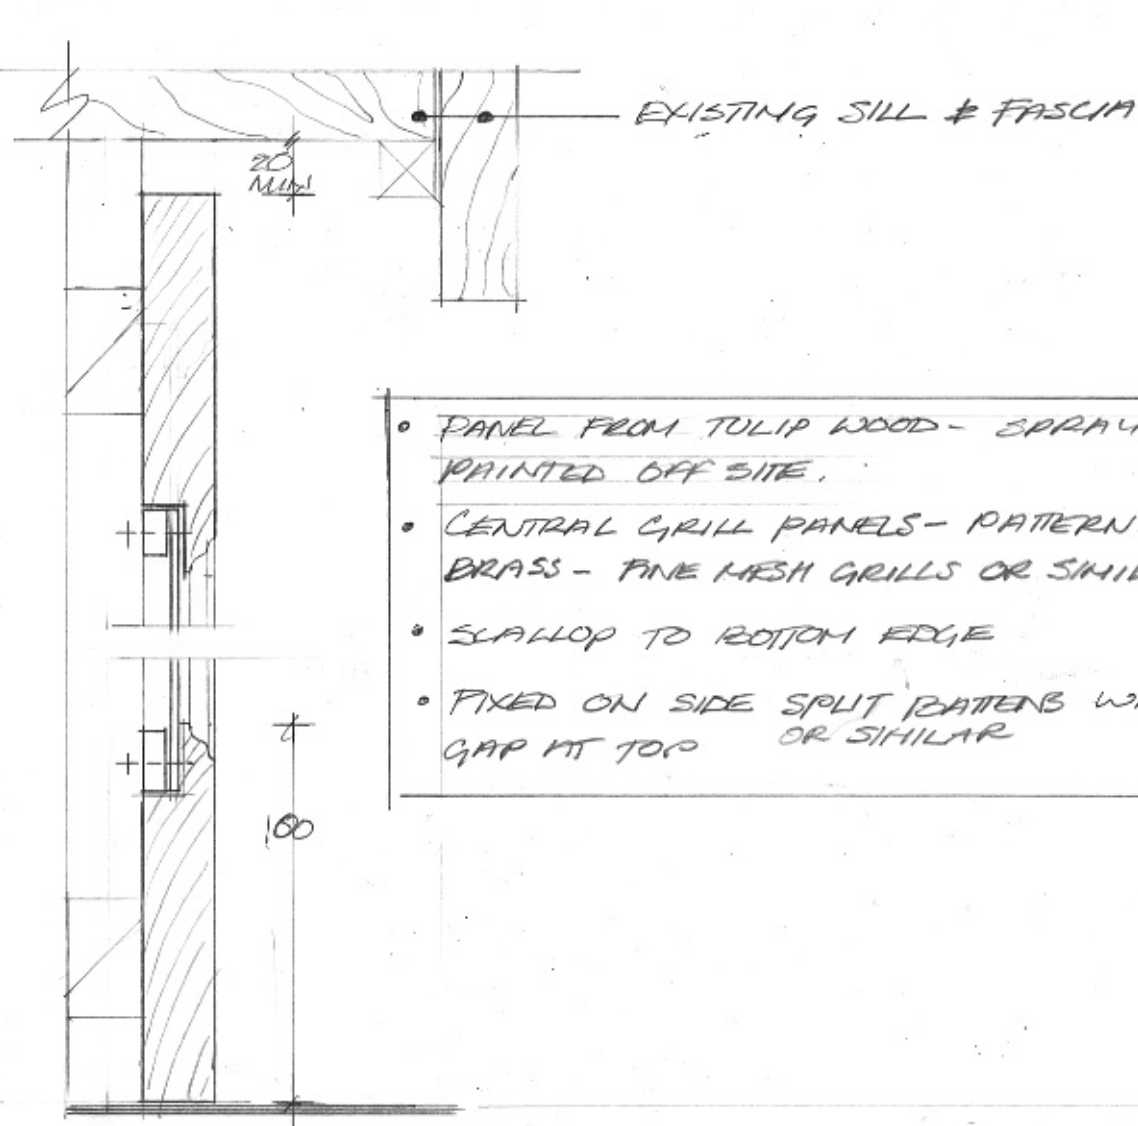 EXISTING SILL & FASCIA
20
MIN
• PANEL FROM TULIP WOOD - SPRAY
PAINTED OFF SITE.
• CENTRAL GRILL PANELS - PATTERN
BRASS - FINE MESH GRILLS OR SIMIL
• SCALLOP TO BOTTOM EDGE
• FIXED ON SIDE SPLIT BATTENS W
GAP AT TOP OR SIMILAR
160